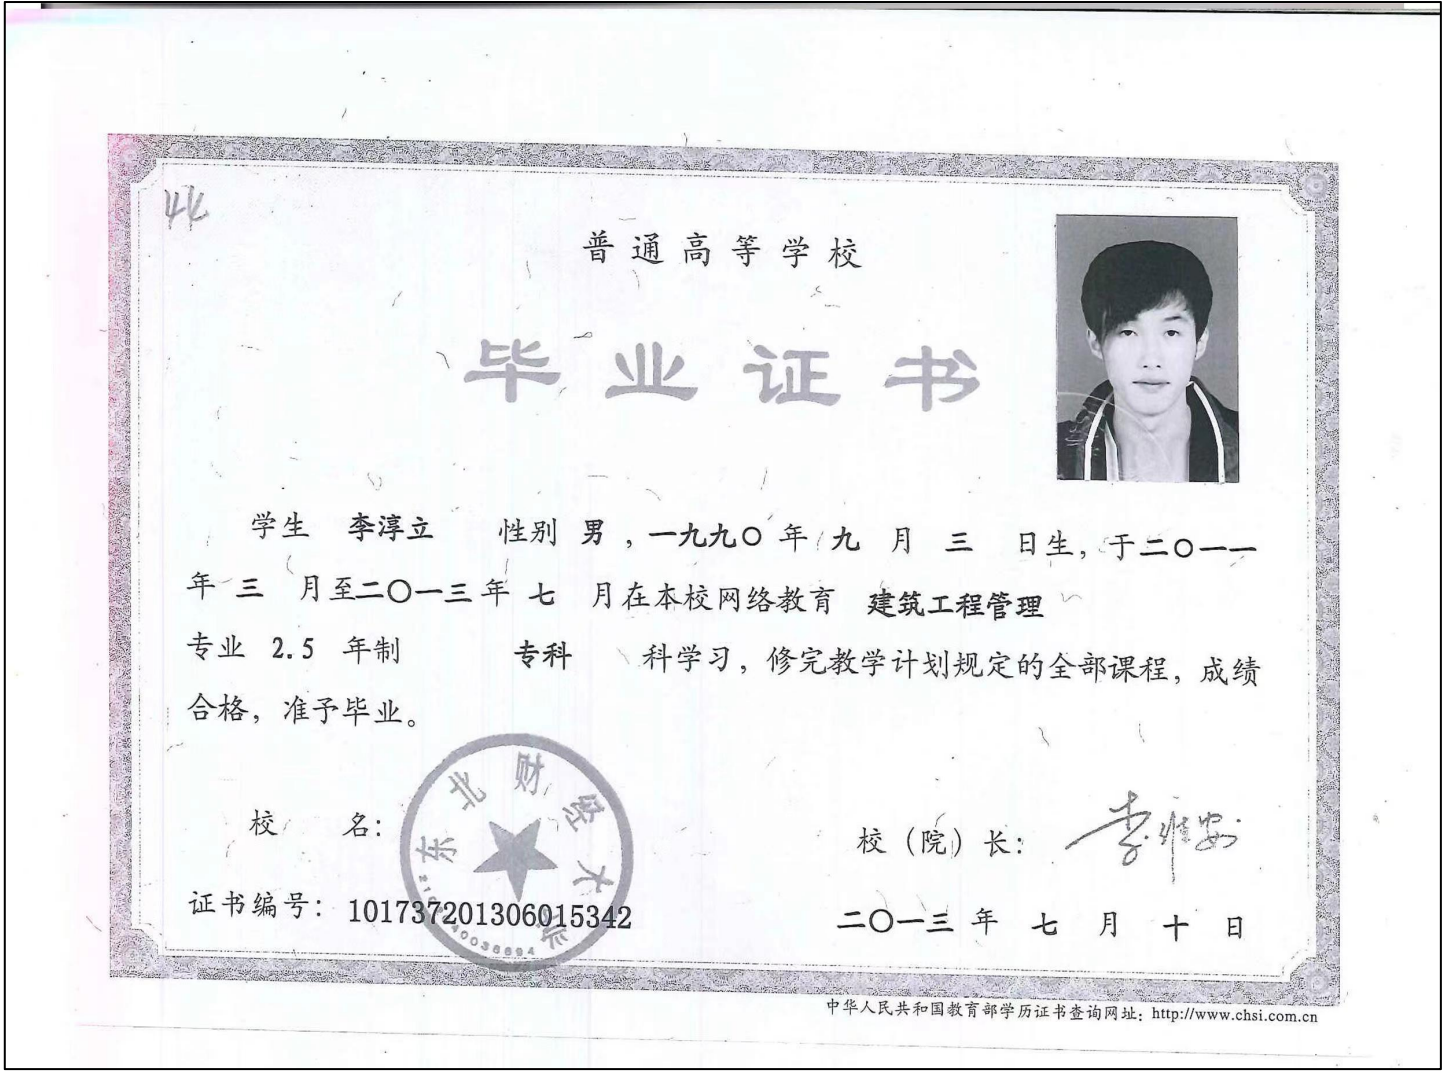 44
普通高等学校
毕业证书
学生 李淳立 性别 男，一九九〇年 九 月 三 日生，于二〇一一
年 三 月至二〇一三年 七 月在本校网络教育 建筑工程管理
专业 2.5 年制 专科 科学习，修完教学计划规定的全部课程，成绩
合格，准予毕业。
校 名：
东北财经大学
校（院）长：
李维安
证书编号：101737201306015342
二〇一三 年 七 月 十 日
中华人民共和国教育部学历证书查询网址：http://www.chsi.com.cn